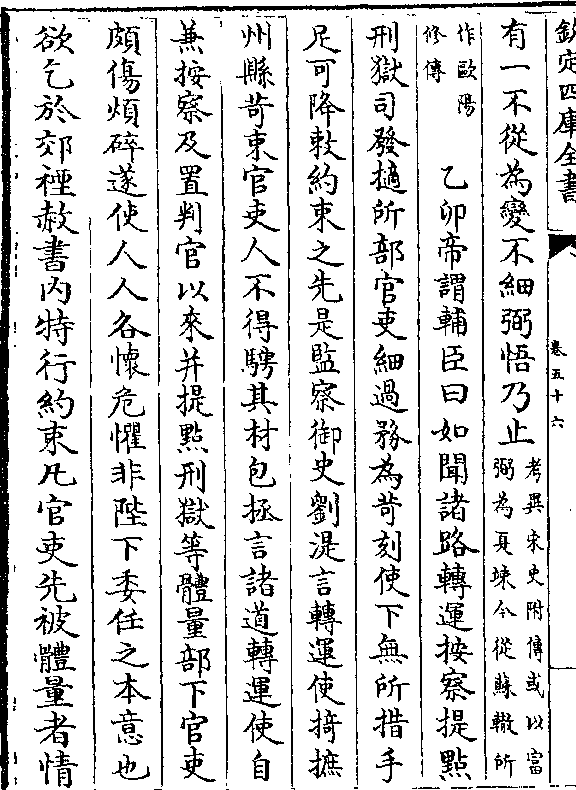 欽定四庫全書
卷五十六
有一不從為變不細弼悟乃止
考異宋史附傳或以富
弼為夏竦今從蘇轍所
作歐陽
修傳
乙卯帝謂輔臣曰如聞諸路轉運按察提點
刑獄司發擿所部官吏細過務為苛刻使下無所措手
足可降敕約束之先是監察御史劉湜言轉運使掎摭
州縣苛束官吏人不得騁其材包拯言諸道轉運使自
兼按察及置判官以來并提點刑獄等體量部下官吏
頗傷煩碎遂使人人各懷危懼非陛下委任之本意也
欲乞於郊禋赦書內特行約束凡官吏先被體量者情